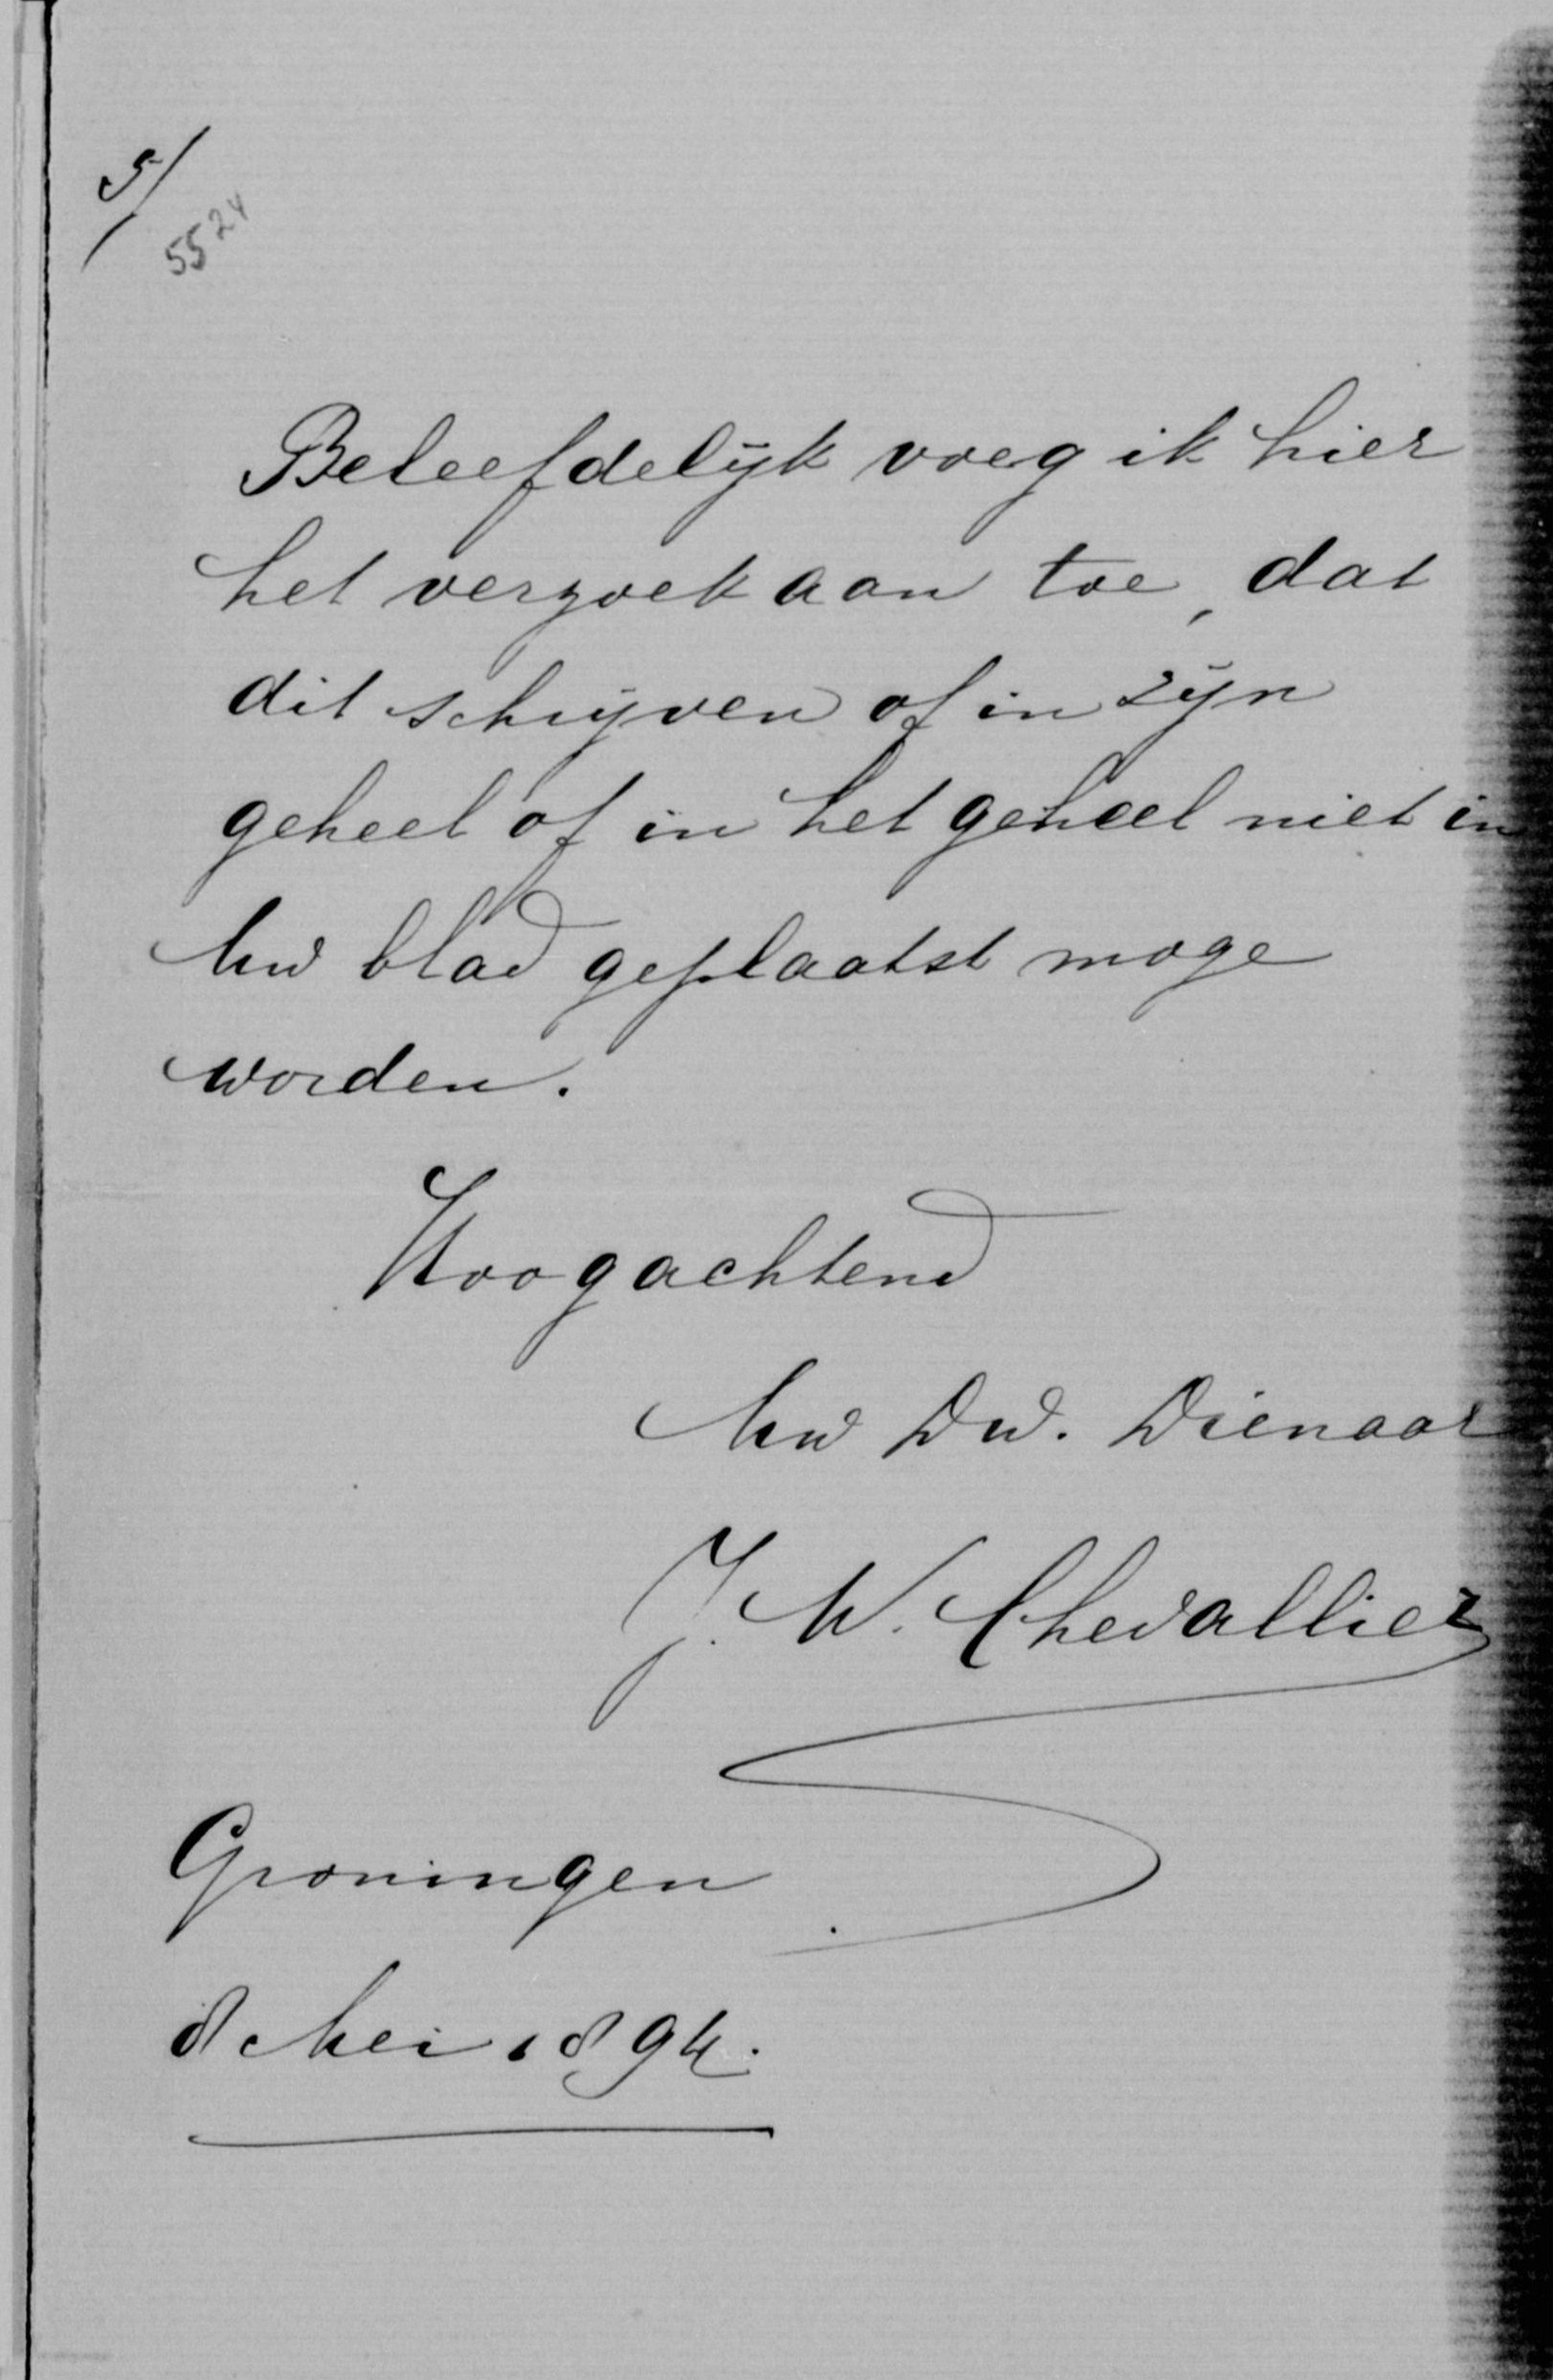 5/
5524
Beleefdelijk voeg ik hier
het verzoek aan toe, dat
dit schrijven of in zijn
geheel of in het geheel niet in
Uw blad geplaatst moge
worden.
Hoogachtend
Uw Dw. Dienaar
J. W. Chevallier
Groningen
8 Mei 1894.